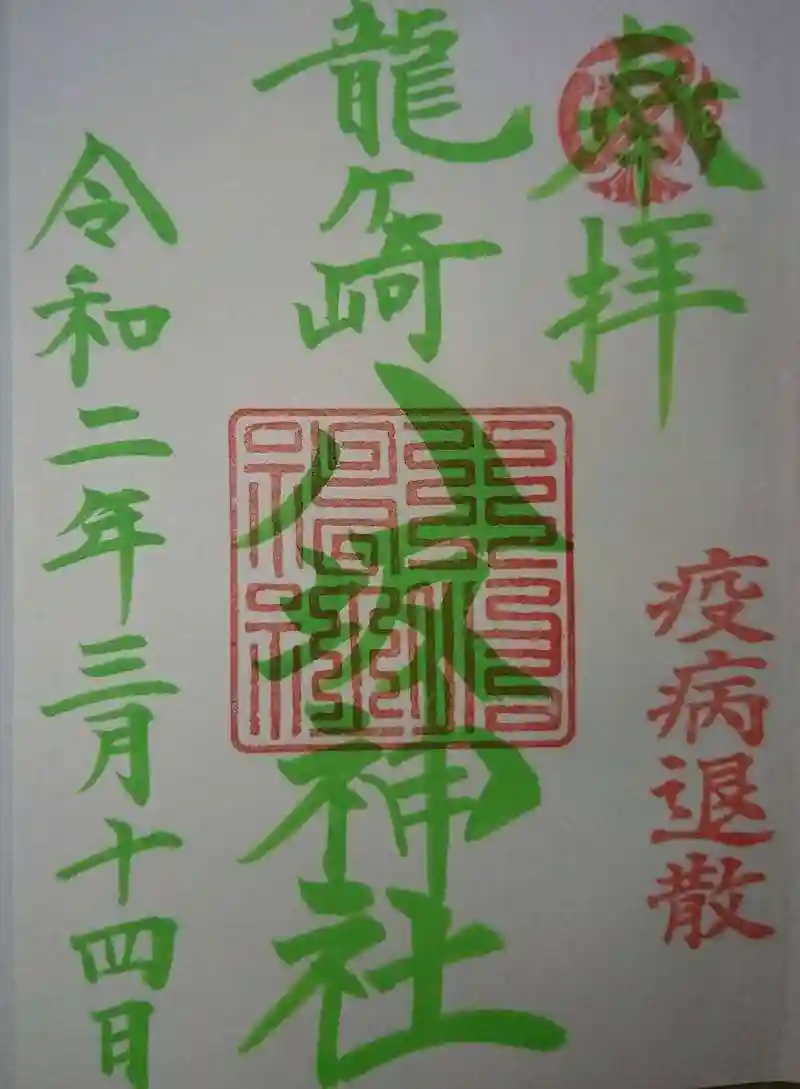 奉拝
疫病退散
龍ケ崎八坂神社
令和二年三月十四日